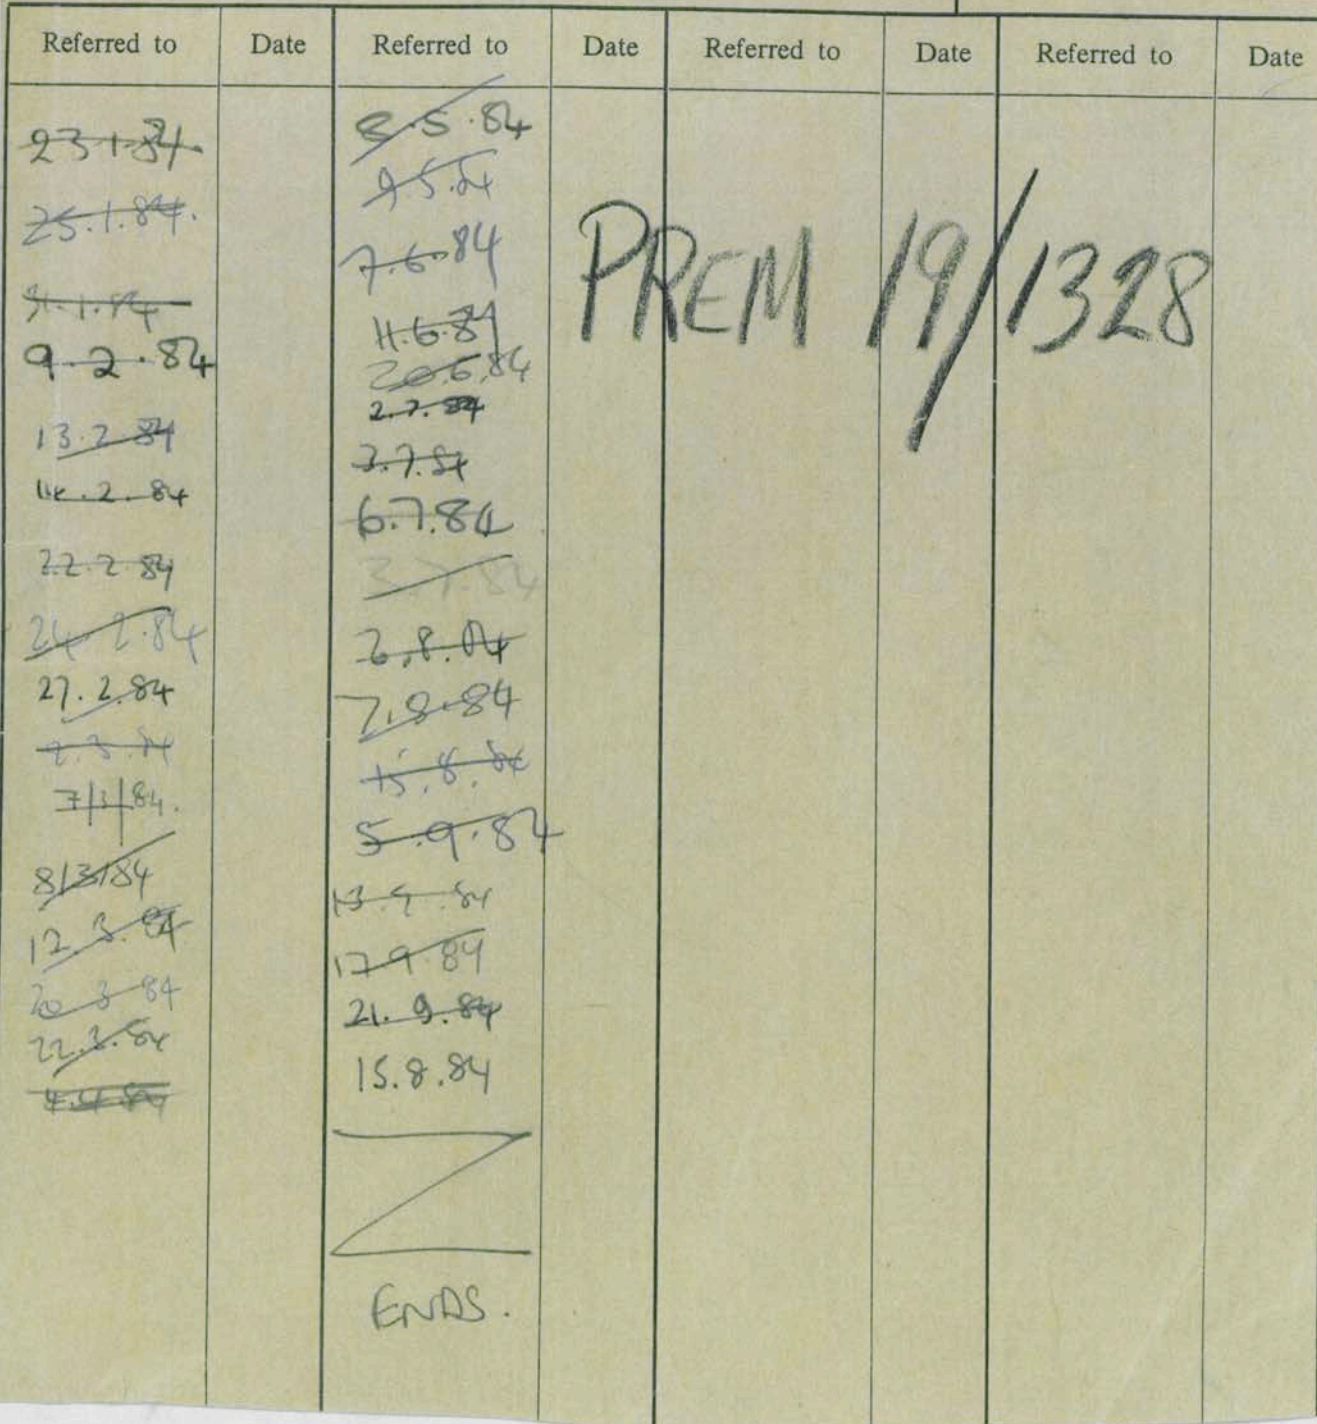 Referred to Date Referred to Date Referred to Date Referred to Date
23.1.84.
25.1.84.
31.1.84
9.2.84
13.2.84
14.2.84
22.2.84
24.2.84
27.2.84
2.3.84
7/3/84.
8/3/84
12.3.84
20.3.84
22.3.84
4.4.84
8.5.84
9.5.84
7.6.84
11.6.84
20.6.84
2.7.84
3.7.84
6.7.84
3.7.84
2.8.84
7.8.84
15.8.84
5.9.84
13.9.84
17.9.84
21.9.84
15.8.84
ENDS.
PREM 19/1328